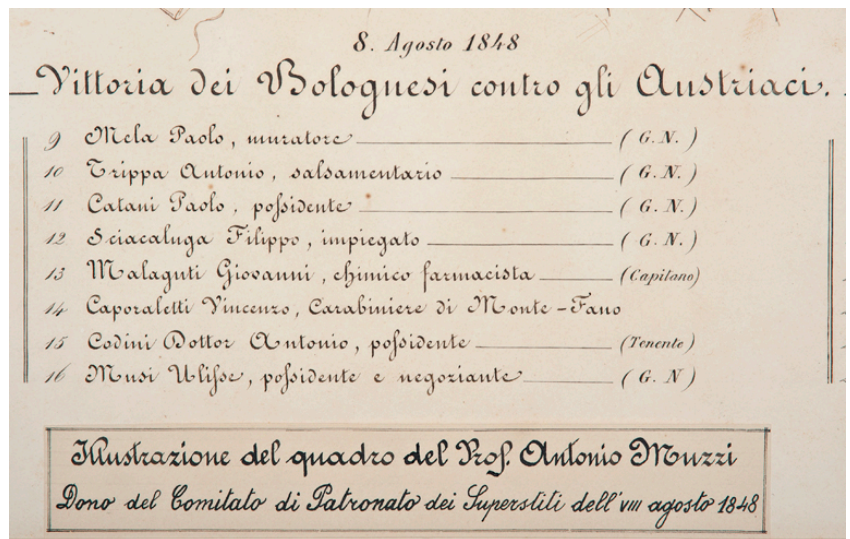 8. Agosto 1848
Vittoria dei Bolognesi contro gli Austriaci.
9 Mela Paolo, muratore (G. N.)
10 Trippa Antonio, salsamentario (G. N.)
11 Catani Paolo, possidente (G. N.)
12 Sciacaluga Filippo, impiegato (G. N.)
13 Malaguti Giovanni, chimico farmacista (Capitano)
14 Caporaletti Vincenzo, Carabiniere di Monte-Fano
15 Codini Dottor Antonio, possidente (Tenente)
16 Musi Ulisse, possidente e negoziante (G. N)
Illustrazione del quadro del Prof. Antonio Muzzi
Dono del Comitato di Patronato dei Superstiti dell'VIII agosto 1848